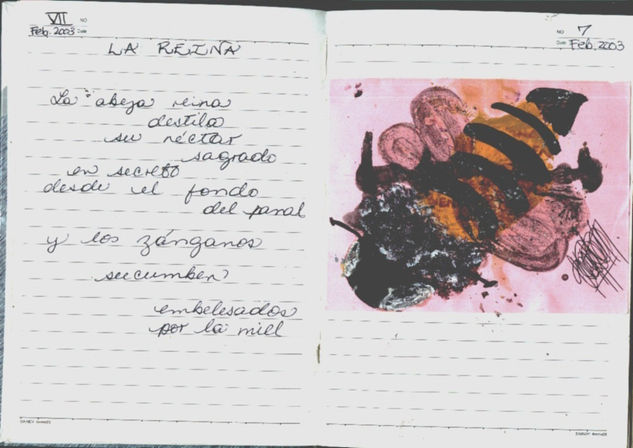 VII
NO
Feb. 2003
LA REINA
La abeja reina
destila
su néctar
sagrado
en secreto
desde el fondo
del panal
y los zánganos
sucumben
embelesados
por la miel
NO 7
Feb. 2003